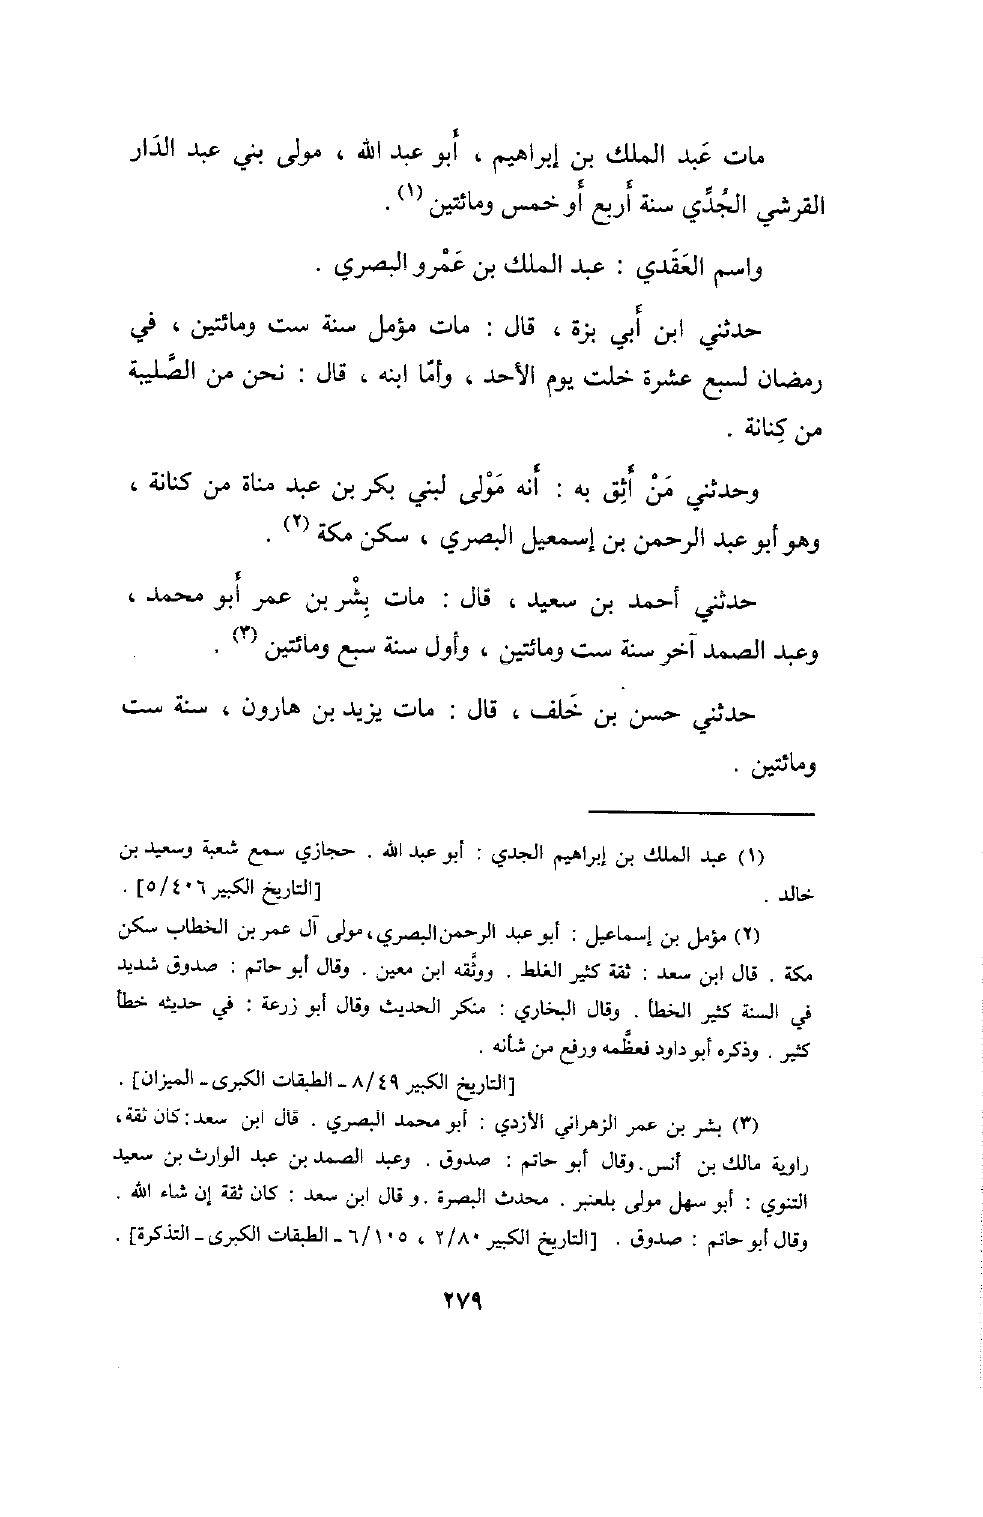 مات عَبد الملك بن إبراهيم ، أَبو عبد الله ، مولى بني عبد الدَار
القرشي الجُدِّي سنة أَربع أَو خمس ومائتين (١) .
واسم العَقَدي : عبد الملك بن عَمْرو البصري .
حدثني ابن أَبي بزة ، قال : مات مؤمل سنة ست ومائتين ، في
رمضان لسبع عشرة خلت يوم الأحد ، وأمّا ابنه ، قال : نحن من الصَّليبة
من كِنانة .
وحدثني مَنْ أَثِق به : أَنه مَوْلى لبني بكر بن عبد مناة من كنانة ،
وهو أبو عبد الرحمن بن إسمعيل البصري ، سكن مكة (٢) .
حدثني أحمد بن سعيد ، قال : مات بِشْر بن عمر أَبو محمد ،
وعبد الصمد آخر سنة ست ومائتين ، وأول سنة سبع ومائتين (٣) .
حدثني حسن بن خَلف ، قال : مات يزيد بن هارون ، سنة ست
ومائتين .
(١) عبد الملك بن إبراهيم الجدي : أبو عبد الله . حجازي سمع شعبة وسعيد بن
خالد . [التاريخ الكبير ٥/٤٠٦] .
(٢) مؤمل بن إسماعيل : أبو عبد الرحمن البصري، مولى آل عمر بن الخطاب سكن
مكة . قال ابن سعد : ثقة كثير الغلط . ووثَّقه ابن معين . وقال أبو حاتم : صدوق شديد
في السنة كثير الخطأ . وقال البخاري : منكر الحديث وقال أبو زرعة : في حديثه خطأ
كثير . وذكره أبو داود فعظَّمه ورفع من شأنه .
[التاريخ الكبير ٨/٤٩ ـ الطبقات الكبرى ـ الميزان] .
(٣) بشر بن عمر الزهراني الأزدي : أبو محمد البصري . قال ابن سعد : كان ثقة ،
راوية مالك بن أنس . وقال أبو حاتم : صدوق . وعبد الصمد بن عبد الوارث بن سعيد
التنوي : أبو سهل مولى بلعنبر . محدث البصرة . و قال ابن سعد : كان ثقة إن شاء الله .
وقال أبو حاتم : صدوق . [التاريخ الكبير ٢/٨٠ ، ٦/١٠٥ ـ الطبقات الكبرى ـ التذكرة] .
٢٧٩